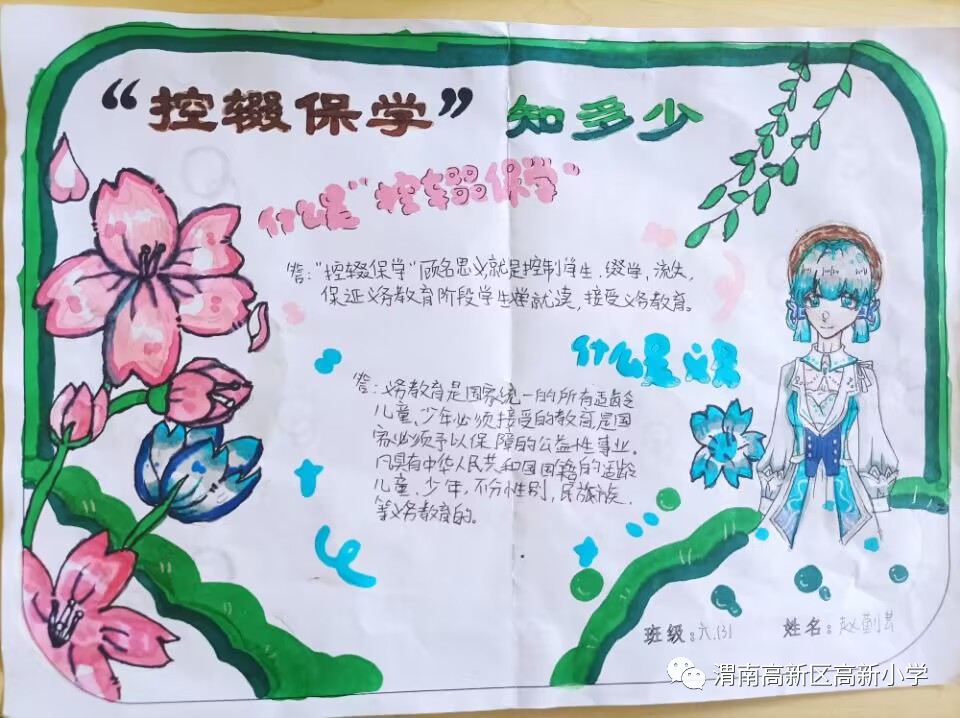 “控辍保学”知多少
什么是“控辍保学”
答:“控辍保学”顾名思义就是控制学生,缀学,流失,
保证义务教育阶段学生就读,接受义务教育。
什么是义
答:义务教育是国家统一的所有适龄
儿童、少年必须接受的教育,是国
家必须予以保障的公益性事业。
凡具有中华人民共和国国籍的适龄
儿童、少年,不分性别,民族
等义务教育的。
班级:六.(3)
姓名:赵
渭南高新区高新小学